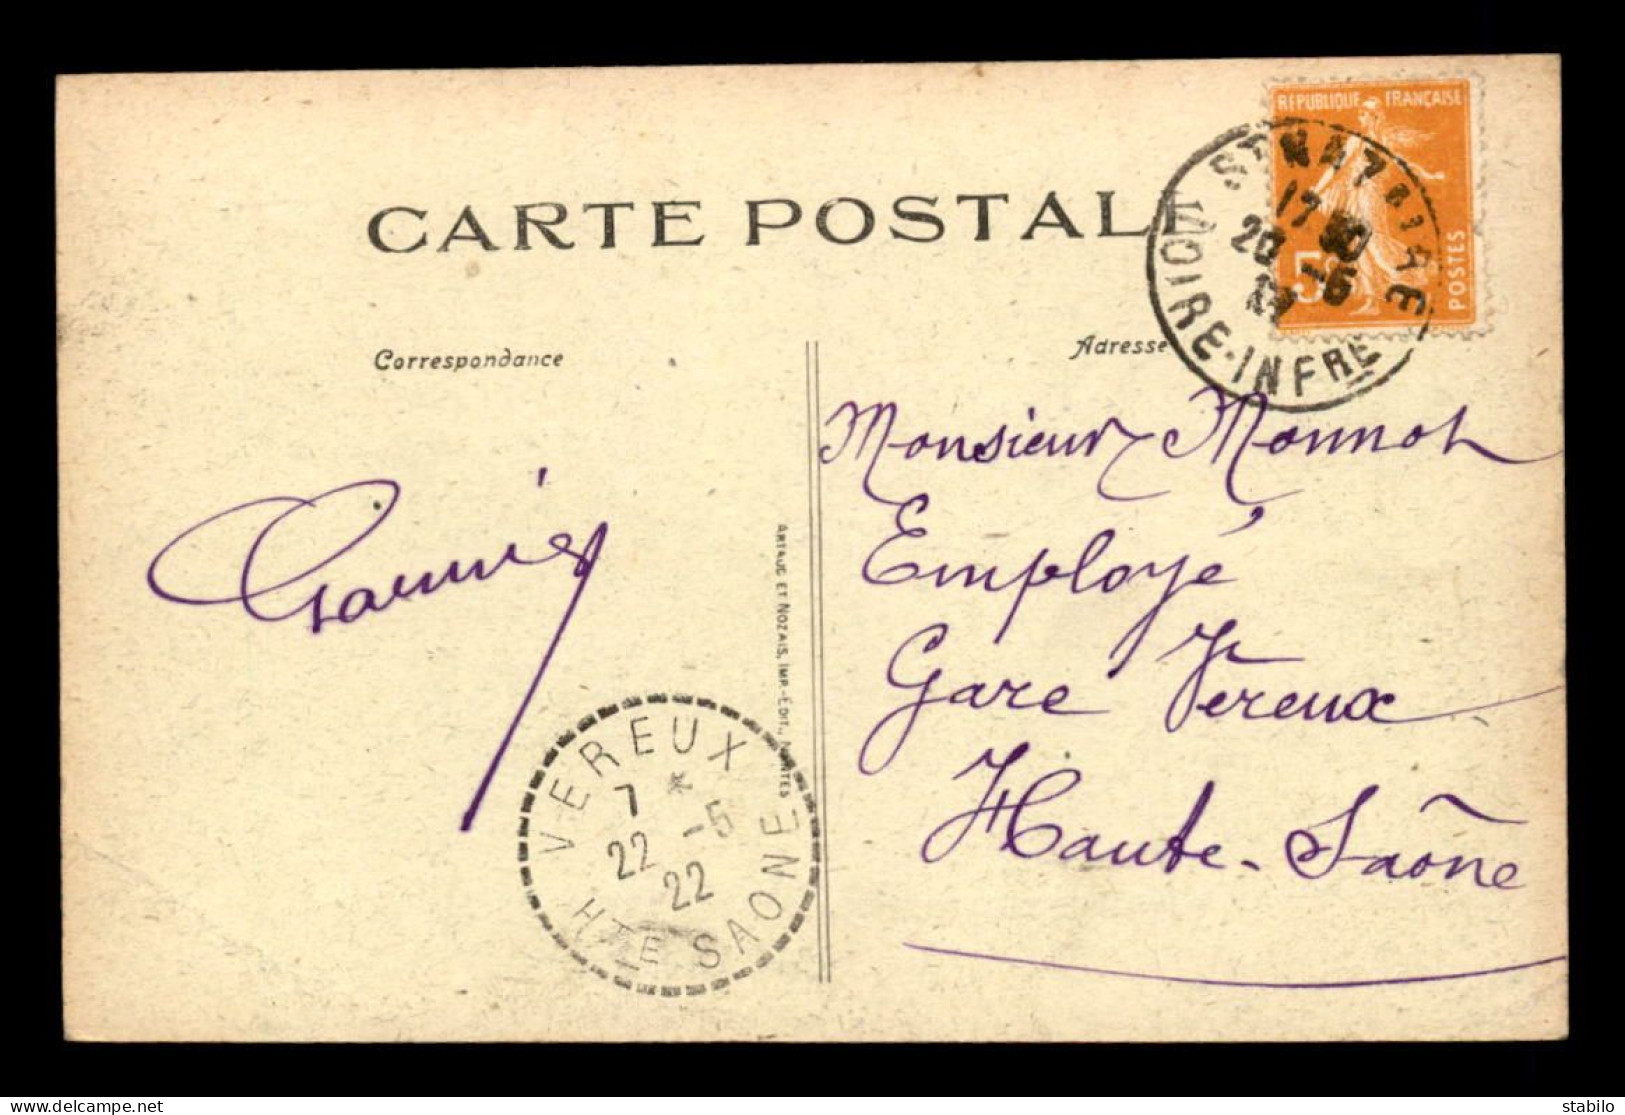 CARTE POSTALE
Correspondance
Adresse
RÉPUBLIQUE FRANÇAISE
5c
POSTES
ST NAZAIRE
17 30
20 -5
LOIRE-INFRE
Monsieur Monnot
Employé
Gare Vereux
Haute-Saône
ARTAUD ET NOZAIS, IMP.-EDIT., NANTES
VEREUX
7 *
22 -5
22
HTE SAONE
stabilo